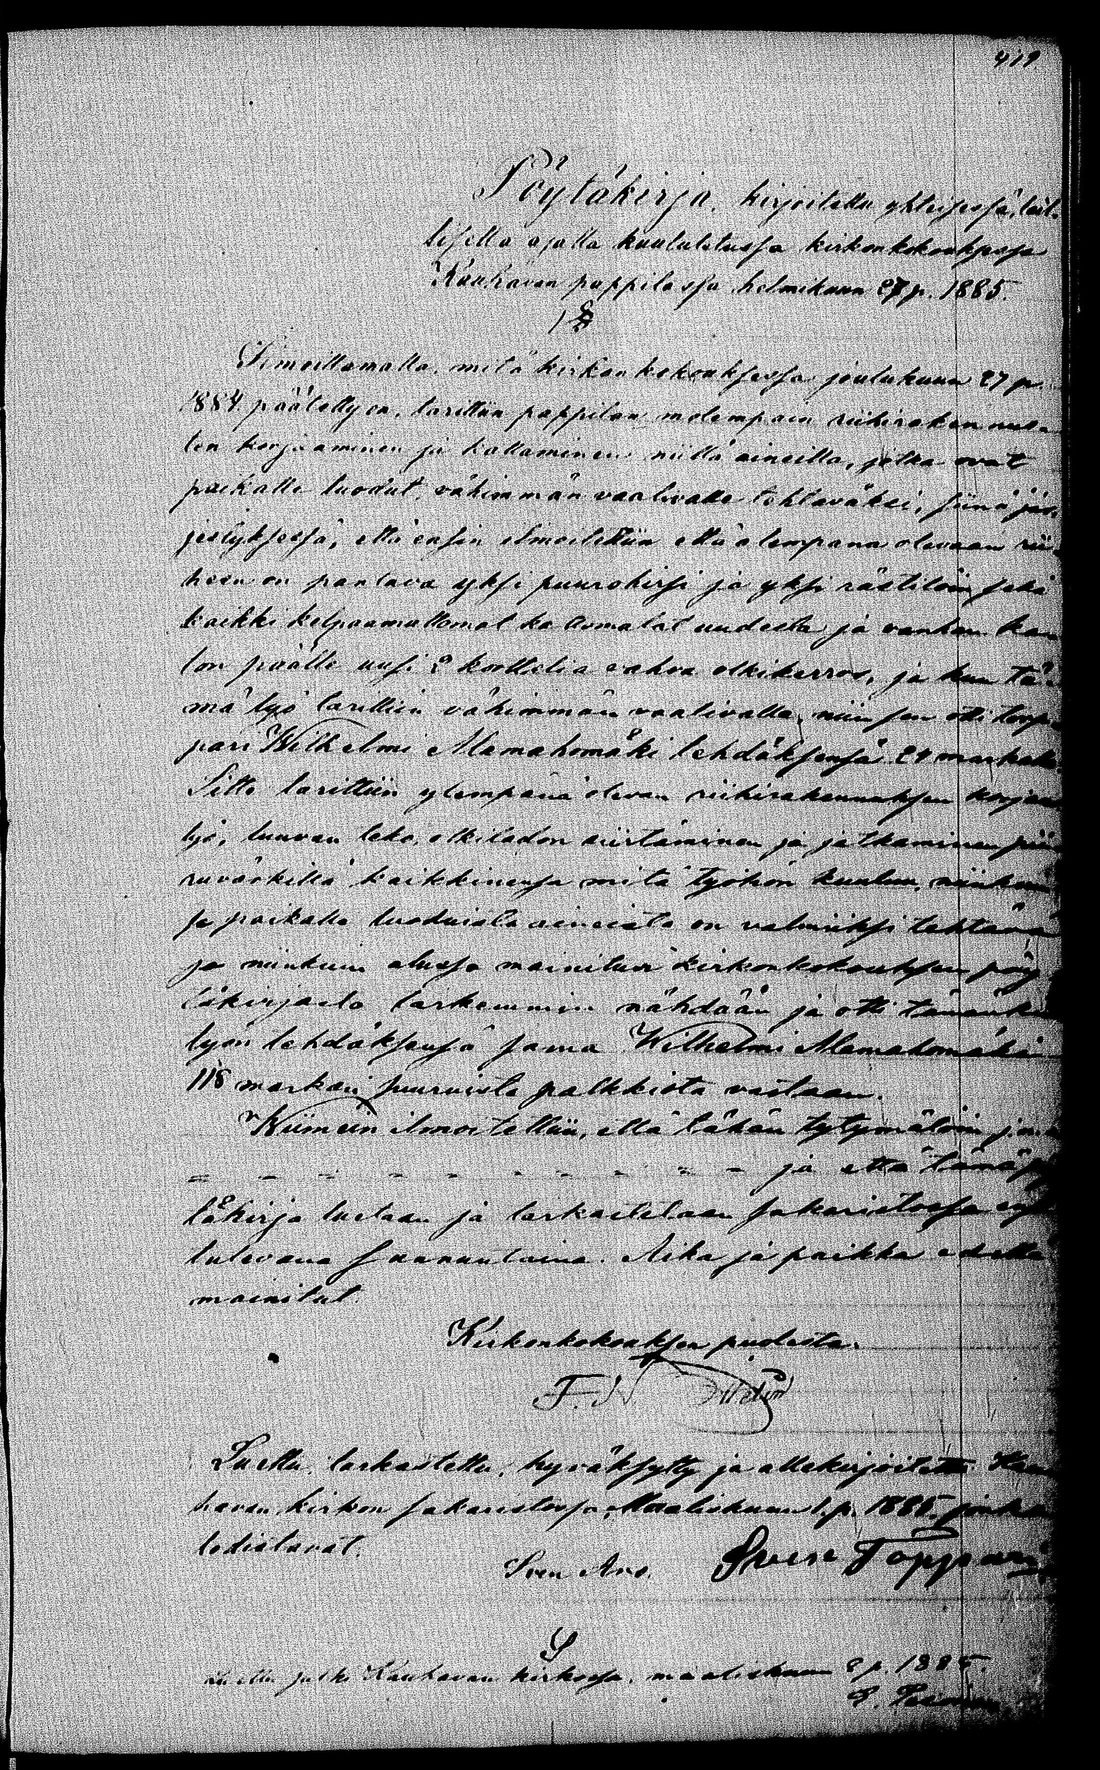 419
Pöytäkirja, kirjoitettu yhteisessä, lail-
lisella ajalla kuulutetussa kirkonkokouksessa
Kauhavan pappilassa helmikuun 27 p. 1885.
1 §
Ilmoittamalla, mitä kirkonkokouksessa joulukuun 27 p.
1884 päätetty on, tarittiin pappilan molempain riihirakennus-
ten korjaaminen ja kattaminen niillä aineilla, jotka ovat
paikalle tuodut, vähimmän vaativalle tehtäväksi, siinä jär-
jestyksessä, että ensin ilmoitettiin että alempana olevaan rii-
heen on pantava yksi puurohirsi ja yksi
kaikki kelpaamattomat uudesta ja vanhan kat
ton päälle uusi 2 korttelia vahva olkikerros, ja kun tä-
mä työ tarittiin vähimmän vaativalle, niin sen otti torp-
pari Wilhelmi Alamahomäki tehdäksensä 24 markalla
Sitte tarittiin ylempänä olevan riihirakennuksen korjaus
työ, luuvan teko, olkiladon siirtäminen ja jatkaminen
kaikkinensa mitä työhön kuuluu, niinkuin
ja paikalla tuoduista aineista on valmiiksi tehtävä
ja niinkuin alussa mainitun kirkonkokouksen pöy
täkirjasta tarkemmin nähdään ja otti tämänkin
työn tehdäksensä sama Wilhelmi Alamahomäki
118 markan suuruista palkkiota vastaan.
Viimein ilmoitettiin, että tähän tytymätöin
– – – – – – – – – – ja että tämä pöy
täkirja luetaan ja tarkastetaan sakaristossa
tulevana sunnuntaina. Aika ja paikka edellä
mainitut.
Kirkonkokouksen puolesta.
F. W.
Luettu, tarkastettu, hyväksytty ja allekirjoitettu Kau
havan kirkon sakaristossa, Maaliskuun 1 p. 1885, jonka
todistavat.
Sven Aro. Sven Töppari
Luettu julki Kauhavan kirkossa, maaliskuun 8 p. 1885.